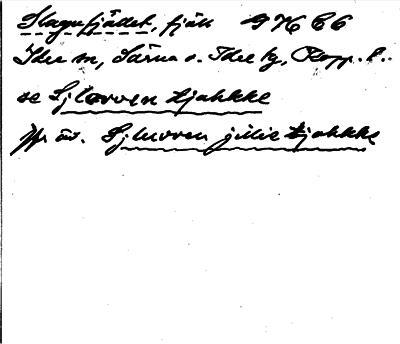 Slagufjället, fjäll 9 H E6
Idre sn, Särna o. Idre tg, Kopp. l.
se Sjlæwen tjahkke
jfr äv. Sjluvven jillie tjahkke